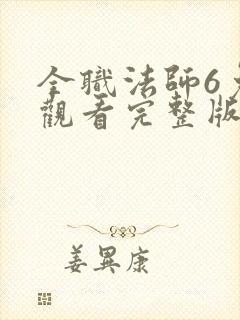 全職法師6免
觀看完整版
姜異康